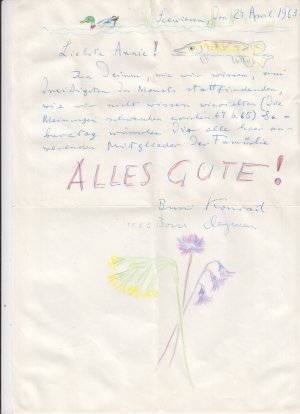 Seewiesen, den 29. April 1963
Liebste Annie!
Zu Deinem, wie wir wissen, am
dreißigsten des Monats stattfindenden,
wie wir nicht wissen wievielten (die
Meinungen schwanken zwischen 64 & 65) Ge-
burtstag wünschen Dir alle hier an-
wesenden Mitglieder der Familie
ALLES GUTE!
Bussi Konrad
Bussi